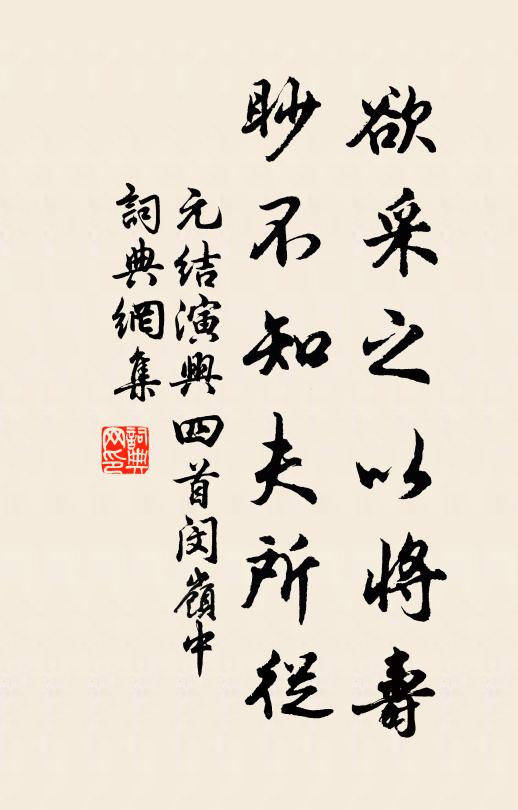 欲采之以將壽
眇不知夫所從
元結演興四首閔嶺中
詞典網集
詞典网印